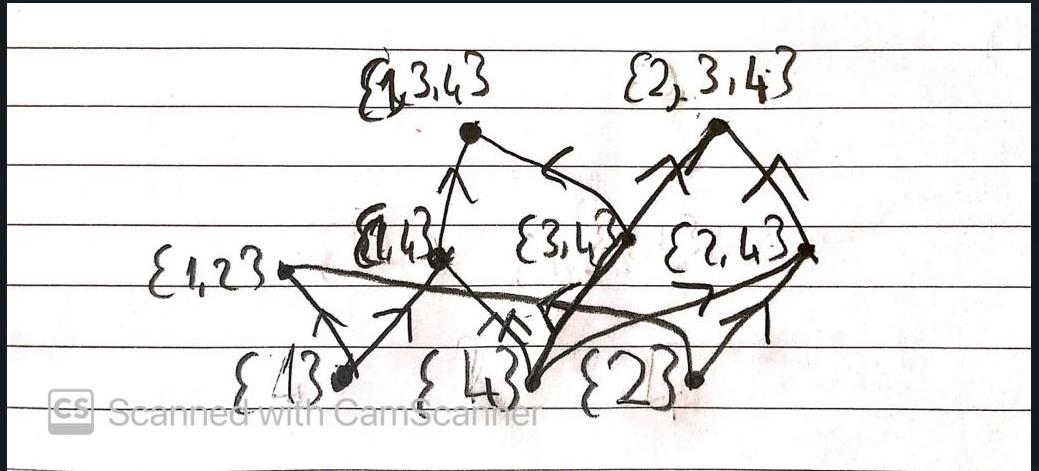 {1,3,4} {2,3,4}
{1,2} {1,4} {3,4} {2,4}
{1} {4} {2}
CS Scanned with CamScanner